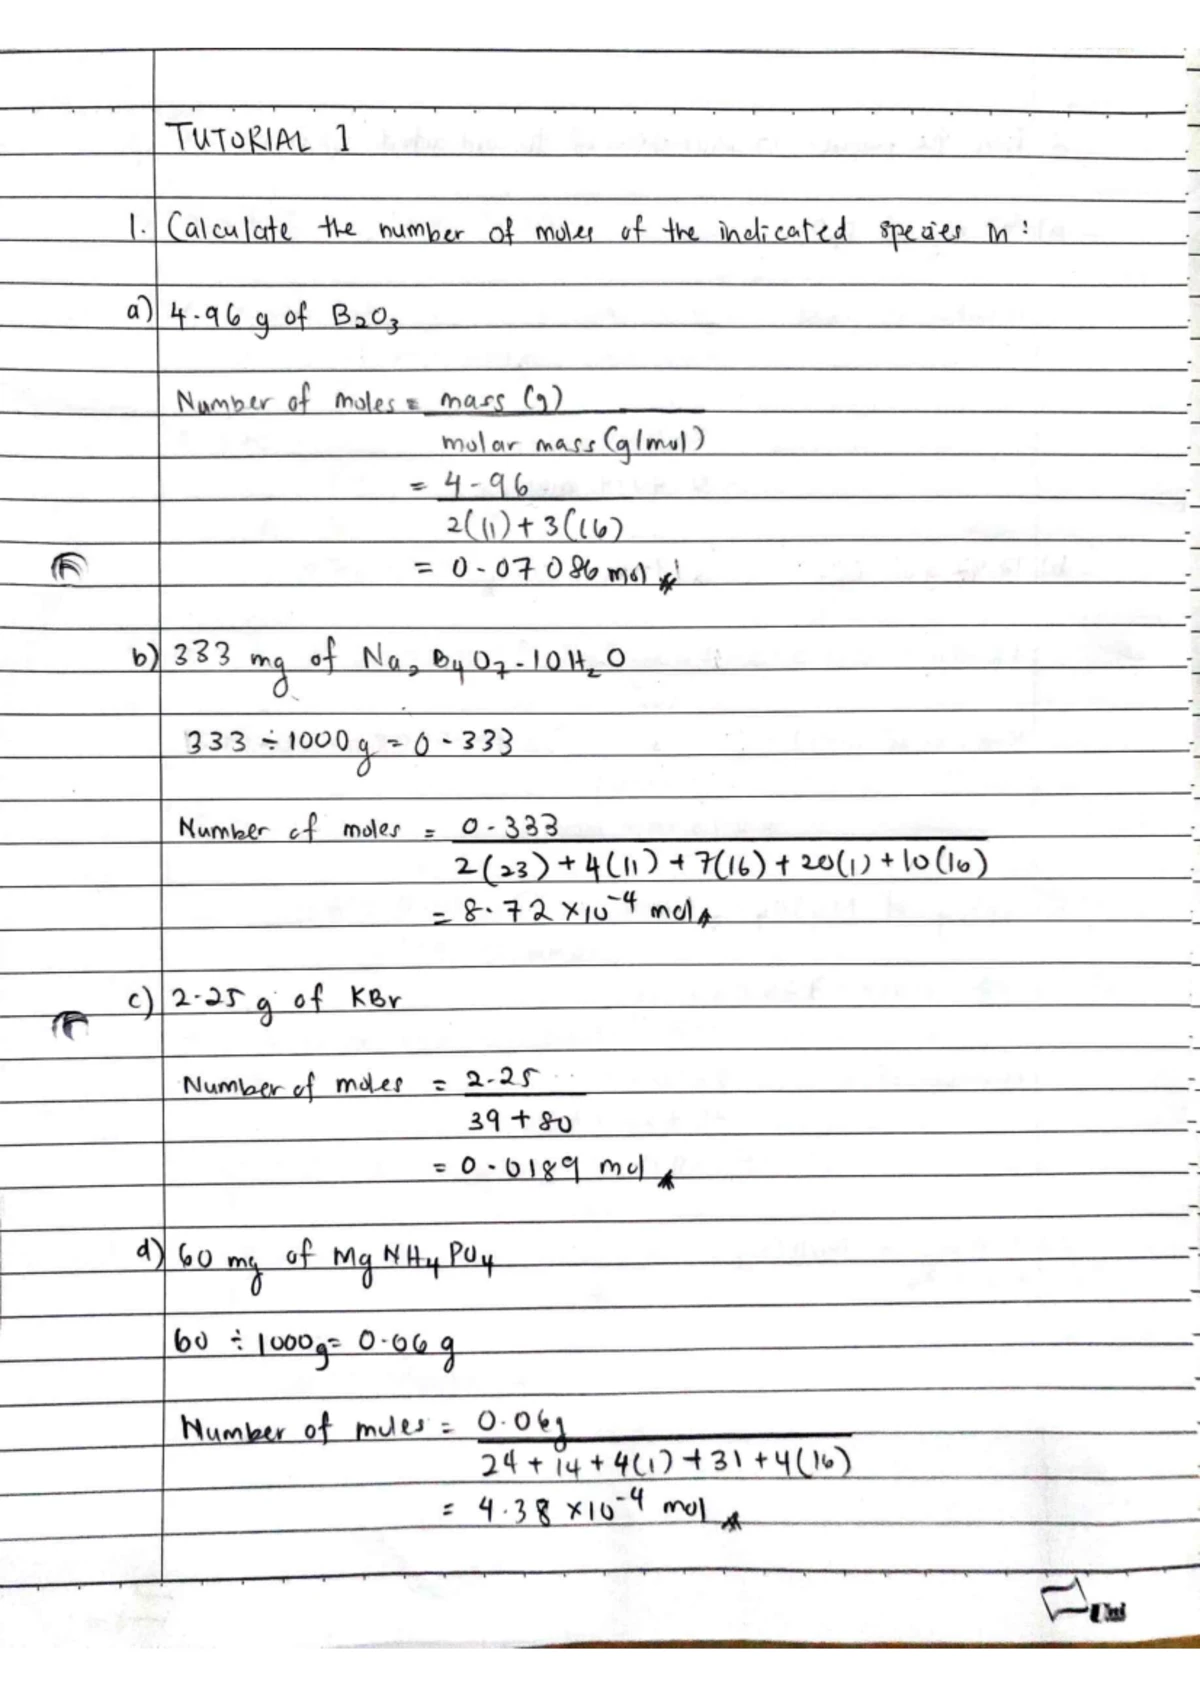 TUTORIAL 1
1. Calculate the number of moles of the indicated species in:
a) 4.96 g of B₂O₃
Number of moles = mass (g)
molar mass (g/mol)
= 4.96
2(11) + 3(16)
= 0.07086 mol
b) 333 mg of Na₂B₄O₇.10H₂O
333 ÷ 1000 g = 0.333
Number of moles = 0.333
2(23) + 4(11) + 7(16) + 20(1) + 10(16)
= 8.72 × 10⁻⁴ mol
c) 2.25 g of KBr
Number of moles = 2.25
39 + 80
= 0.0189 mol
d) 60 mg of MgNH₄PO₄
60 ÷ 1000g = 0.06 g
Number of moles = 0.06g
24 + 14 + 4(1) + 31 + 4(16)
= 4.38 × 10⁻⁴ mol